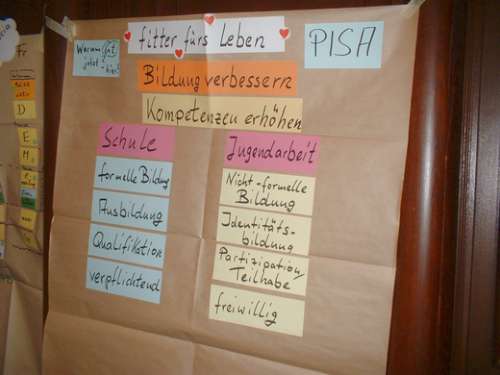 Warum
jetzt - hier?
fitter fürs Leben
PISA
Bildung verbessern
Kompetenzen erhöhen
Schule
formelle Bildung
Ausbildung
Qualifikation
verpflichtend
Jugendarbeit
Nicht-formelle
Bildung
Identitäts-
bildung
Partizipation,
Teilhabe
freiwillig
Fr
D
E